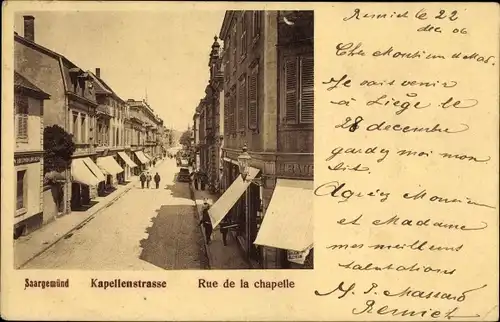 Remich le 22
dec 06
Cher Monsieur et Mad.
Je vais venir
à Liège le
28 decembre
gardez moi mon
lit.
Agréez Monsieur
et Madame
mes meilleurs
salutations
P. Massard
Remich
Saargemünd Kapellenstrasse Rue de la chapelle